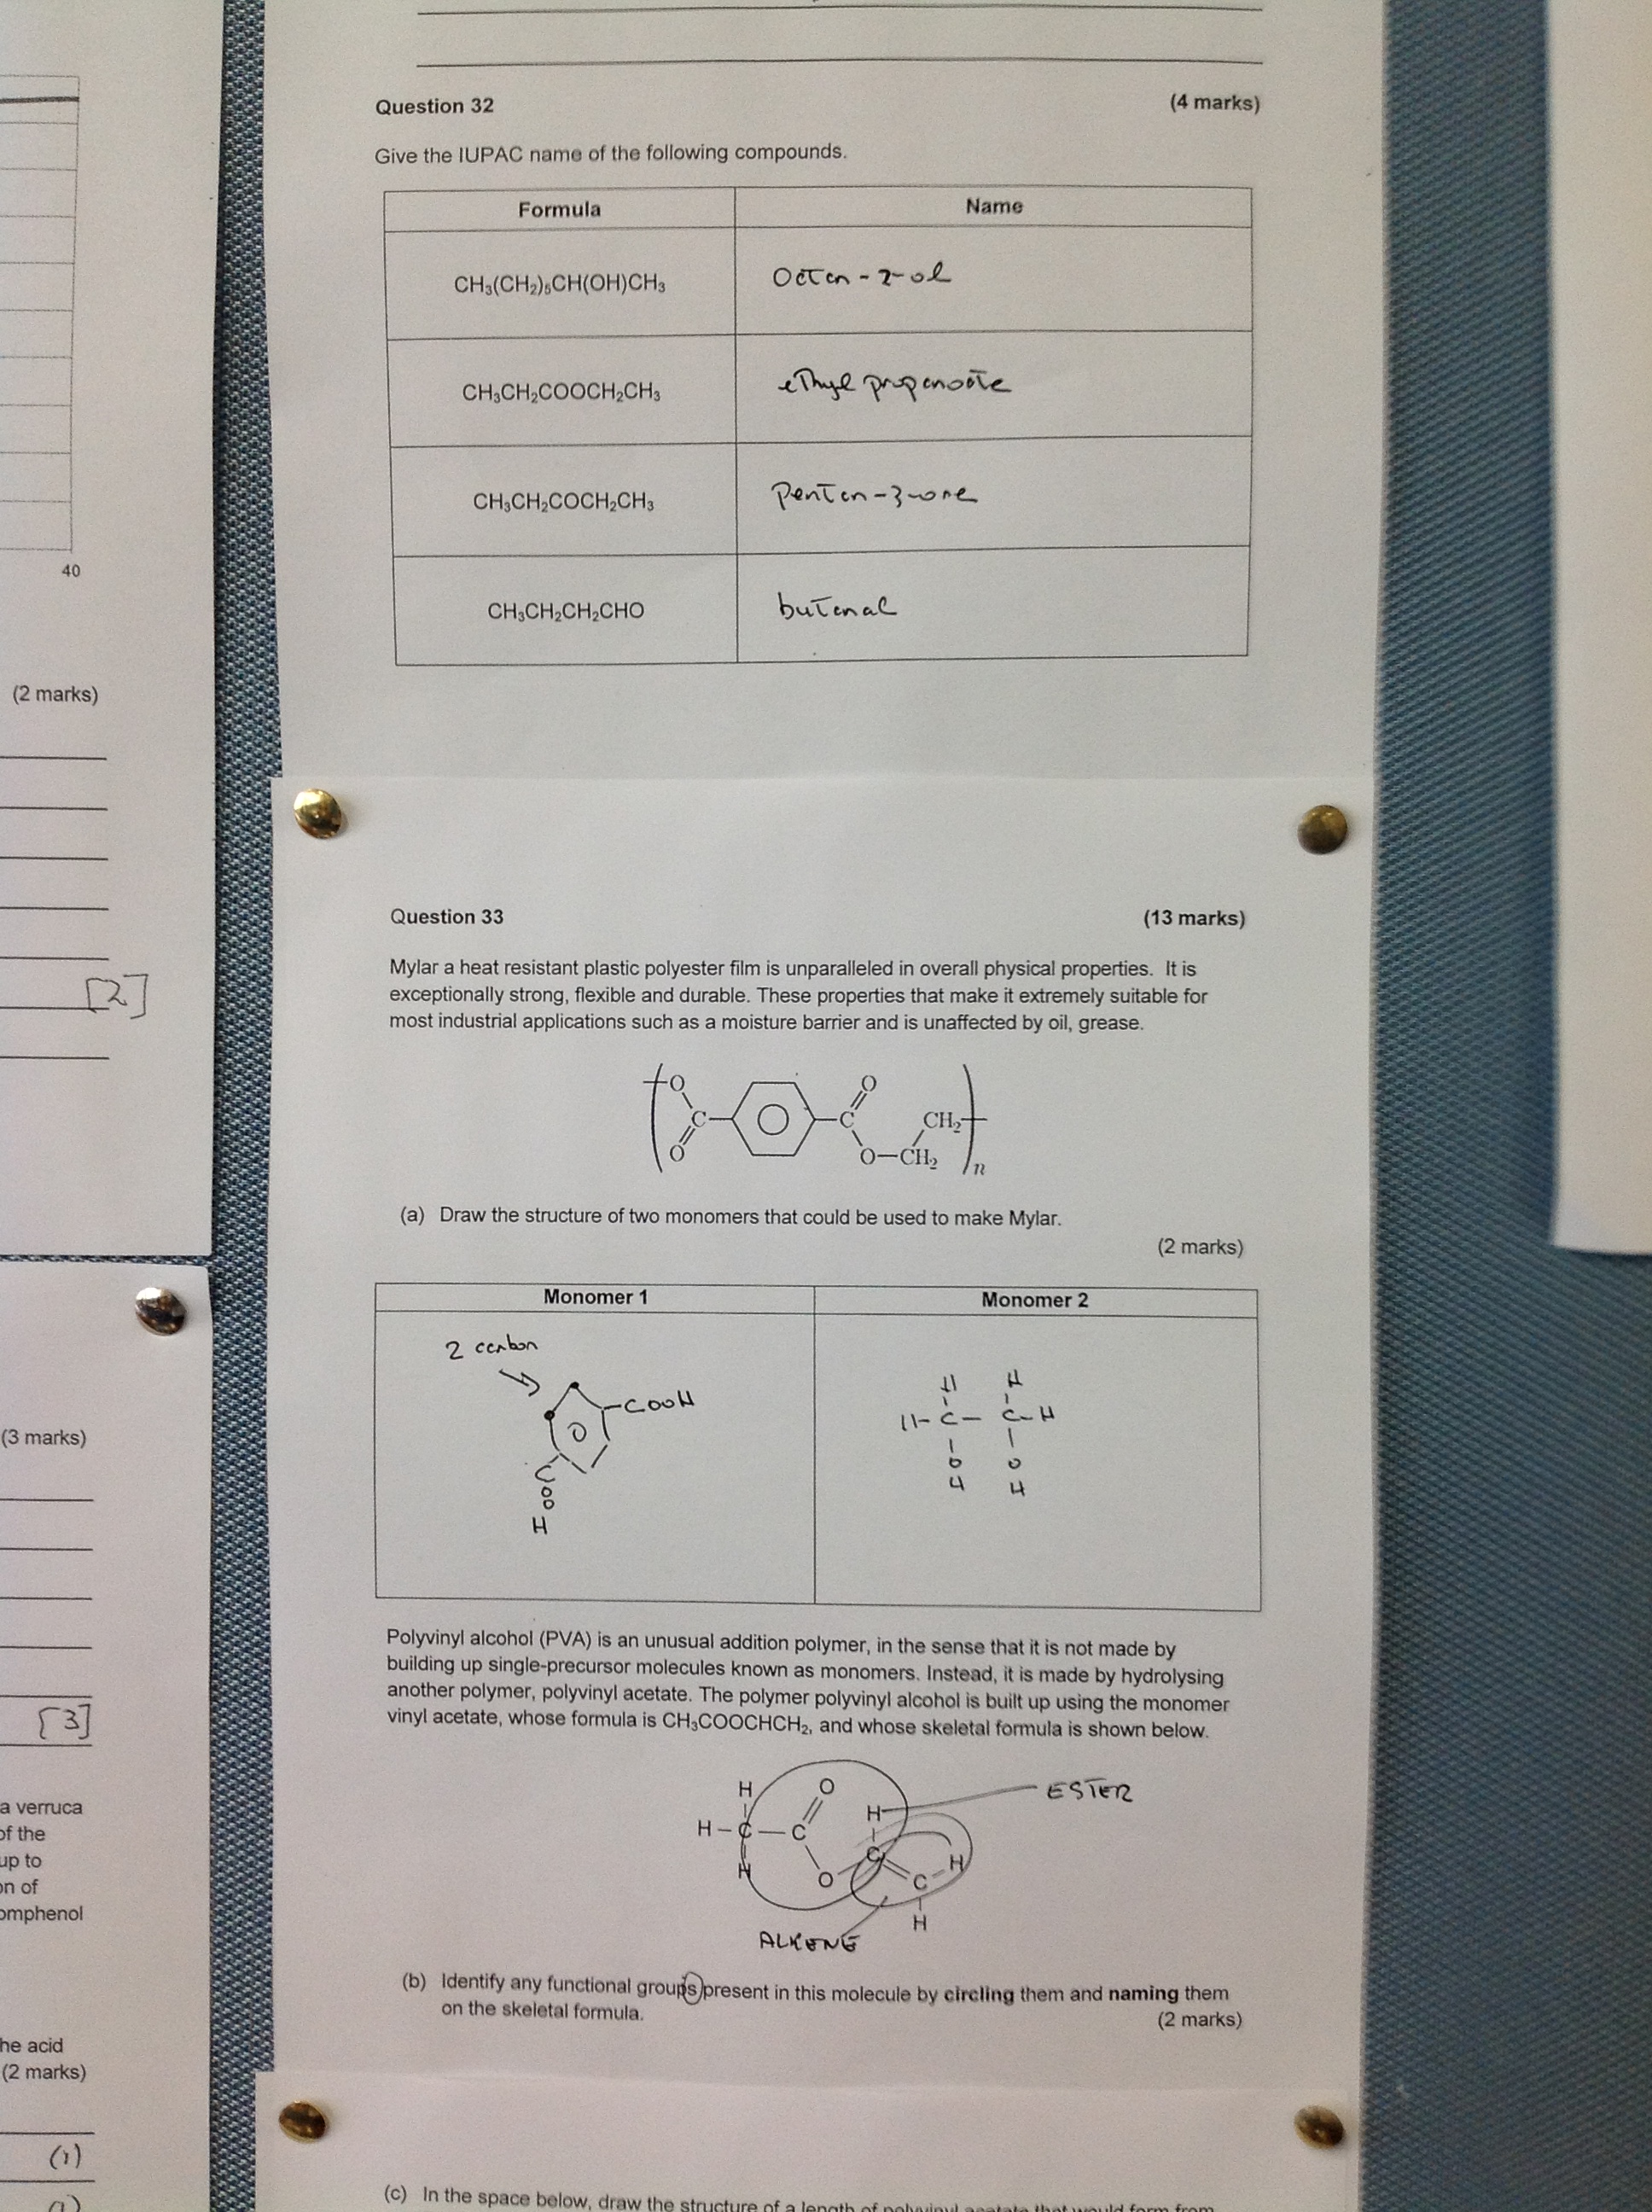 40
(2 marks)
[2]
(3 marks)
[3]
a verruca
of the
up to
on of
omphenol
he acid
(2 marks)
(1)
Question 32
(4 marks)
Give the IUPAC name of the following compounds.
Formula
Name
CH₃(CH₂)₅CH(OH)CH₃
Octan-2-ol
CH₃CH₂COOCH₂CH₃
ethyl propanoate
CH₃CH₂COCH₂CH₃
Pentan-3-one
CH₃CH₂CH₂CHO
butanal
Question 33
(13 marks)
Mylar a heat resistant plastic polyester film is unparalleled in overall physical properties. It is
exceptionally strong, flexible and durable. These properties that make it extremely suitable for
most industrial applications such as a moisture barrier and is unaffected by oil, grease.
O
O
C
C
CH₂
O
O—CH₂
n
(a) Draw the structure of two monomers that could be used to make Mylar.
(2 marks)
Monomer 1
Monomer 2
2 carbon
COOH
C
O
O
H
H H
H-C-C-H
O O
H H
Polyvinyl alcohol (PVA) is an unusual addition polymer, in the sense that it is not made by
building up single-precursor molecules known as monomers. Instead, it is made by hydrolysing
another polymer, polyvinyl acetate. The polymer polyvinyl alcohol is built up using the monomer
vinyl acetate, whose formula is CH₃COOCHCH₂, and whose skeletal formula is shown below.
H O
ESTER
H
H–C—C
C
H
H
O
C
H
ALKENE
(b) Identify any functional groups present in this molecule by circling them and naming them
on the skeletal formula.
(2 marks)
(c) In the space below, draw the structure of a length of polyvinyl acetate that would form from